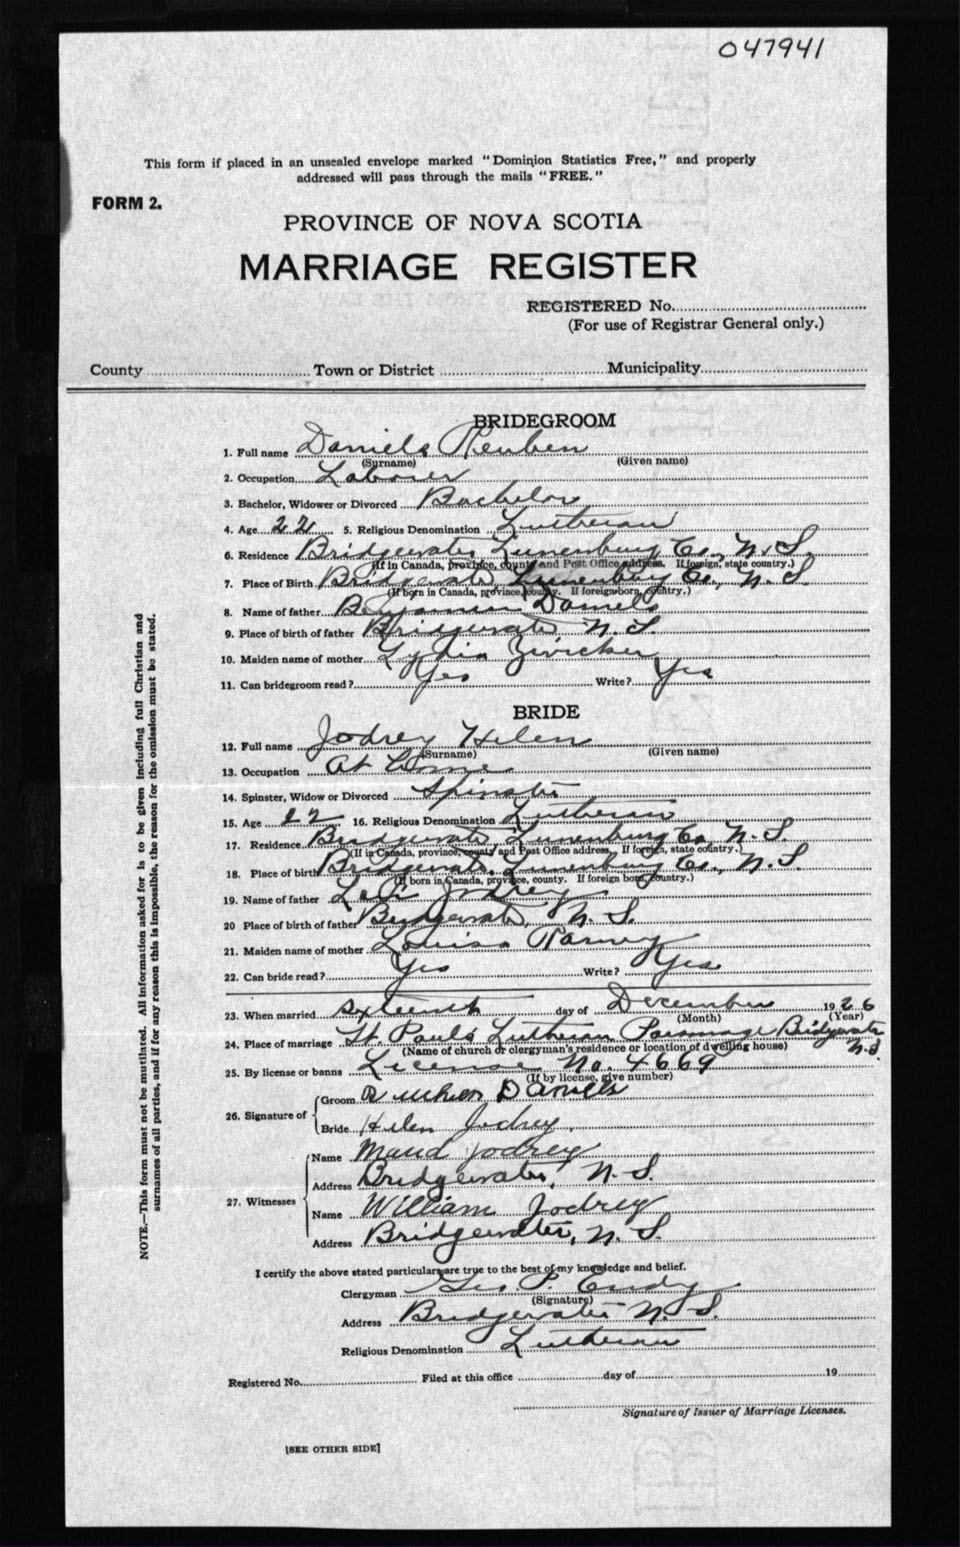 047941
This form if placed in an unsealed envelope marked "Dominion Statistics Free," and properly
addressed will pass through the mails "FREE."
FORM 2.
PROVINCE OF NOVA SCOTIA
MARRIAGE REGISTER
REGISTERED No.
(For use of Registrar General only.)
County Town or District Municipality
BRIDEGROOM
1. Full name Daniels Reuben
(Surname) (Given name)
2. Occupation Laborer
3. Bachelor, Widower or Divorced Bachelor
4. Age 22 5. Religious Denomination Lutheran
6. Residence Bridgewater, Lunenburg Co., N.S.
(If in Canada, province, county and Post Office address. If foreign, state country.)
7. Place of Birth Bridgewater, Lunenburg Co., N.S.
(If born in Canada, province, county. If foreign born, country.)
8. Name of father Benjamin Daniels
9. Place of birth of father Bridgewater, N.S.
10. Maiden name of mother Lydia Zwicker
11. Can bridegroom read? Yes Write? Yes
BRIDE
12. Full name Jodrey Helen
(Surname) (Given name)
13. Occupation At home
14. Spinster, Widow or Divorced Spinster
15. Age 22 16. Religious Denomination Lutheran
17. Residence Bridgewater, Lunenburg Co. N.S.
(If in Canada, province, county and Post Office address. If foreign, state country.)
18. Place of birth Bridgewater, Lunenburg Co., N.S.
(If born in Canada, province, county. If foreign born, country.)
19. Name of father Levi Jodrey
20 Place of birth of father Bridgewater, N.S.
21. Maiden name of mother Louisa Ramey
22. Can bride read? Yes Write? Yes
23. When married sixteenth day of December 1926
(Month) (Year)
24. Place of marriage St. Pauls Lutheran Parsonage Bridgewater
N.S.
(Name of church or clergyman's residence or location of dwelling house)
25. By license or banns License No. 4669
(If by license, give number)
26. Signature of Groom Daniels
Bride Helen Jodrey
27. Witnesses Name Maud Jodrey
Address Bridgewater, N.S.
Name William Jodrey
Address Bridgewater, N.S.
I certify the above stated particulars are true to the best of my knowledge and belief.
Clergyman Geo P.
(Signature)
Address Bridgewater N.S.
Religious Denomination Lutheran
Registered No. Filed at this office day of 19
Signature of Issuer of Marriage Licenses.
[SEE OTHER SIDE]
NOTE.—This form must not be mutilated. All information asked for is to be given including full Christian and
surnames of all parties, and if for any reason this is impossible, the reason for the omission must be stated.